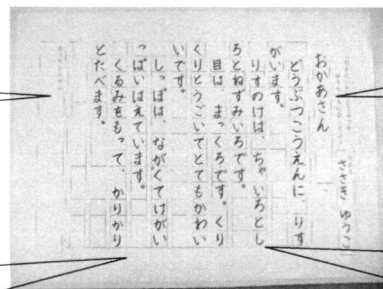 おかあさん
ささき ゆうこ
どうぶつこうえんに、りす
がいます。
りすのけは、ちゃいろとし
ろとねずみいろです。
目は、まっくろです。くり
くりとうごいてとてもかわい
いです。
しっぽは、ながくてけがい
っぱいはえています。
くるみをもって、かりかり
とたべます。